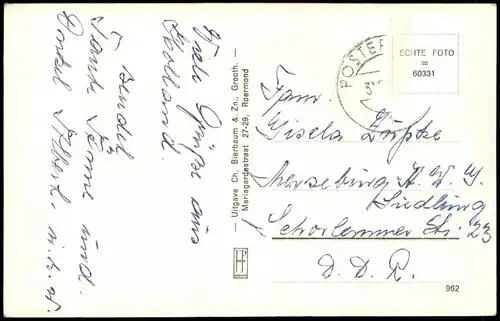 Viele Grüße aus
Holland.
Sendet
Tante Änne und.
Onkel Albert.
Uitgave Ch. Bierbaum & Zn., Grooth.
Mariagardestraat 27-29, Roermond
POSTER
ECHTE FOTO
=
60331
Fam.
Gisela
Merseburg A. W. G
Siedlung
Schorlemmer Str. 23
D. D. R.
962